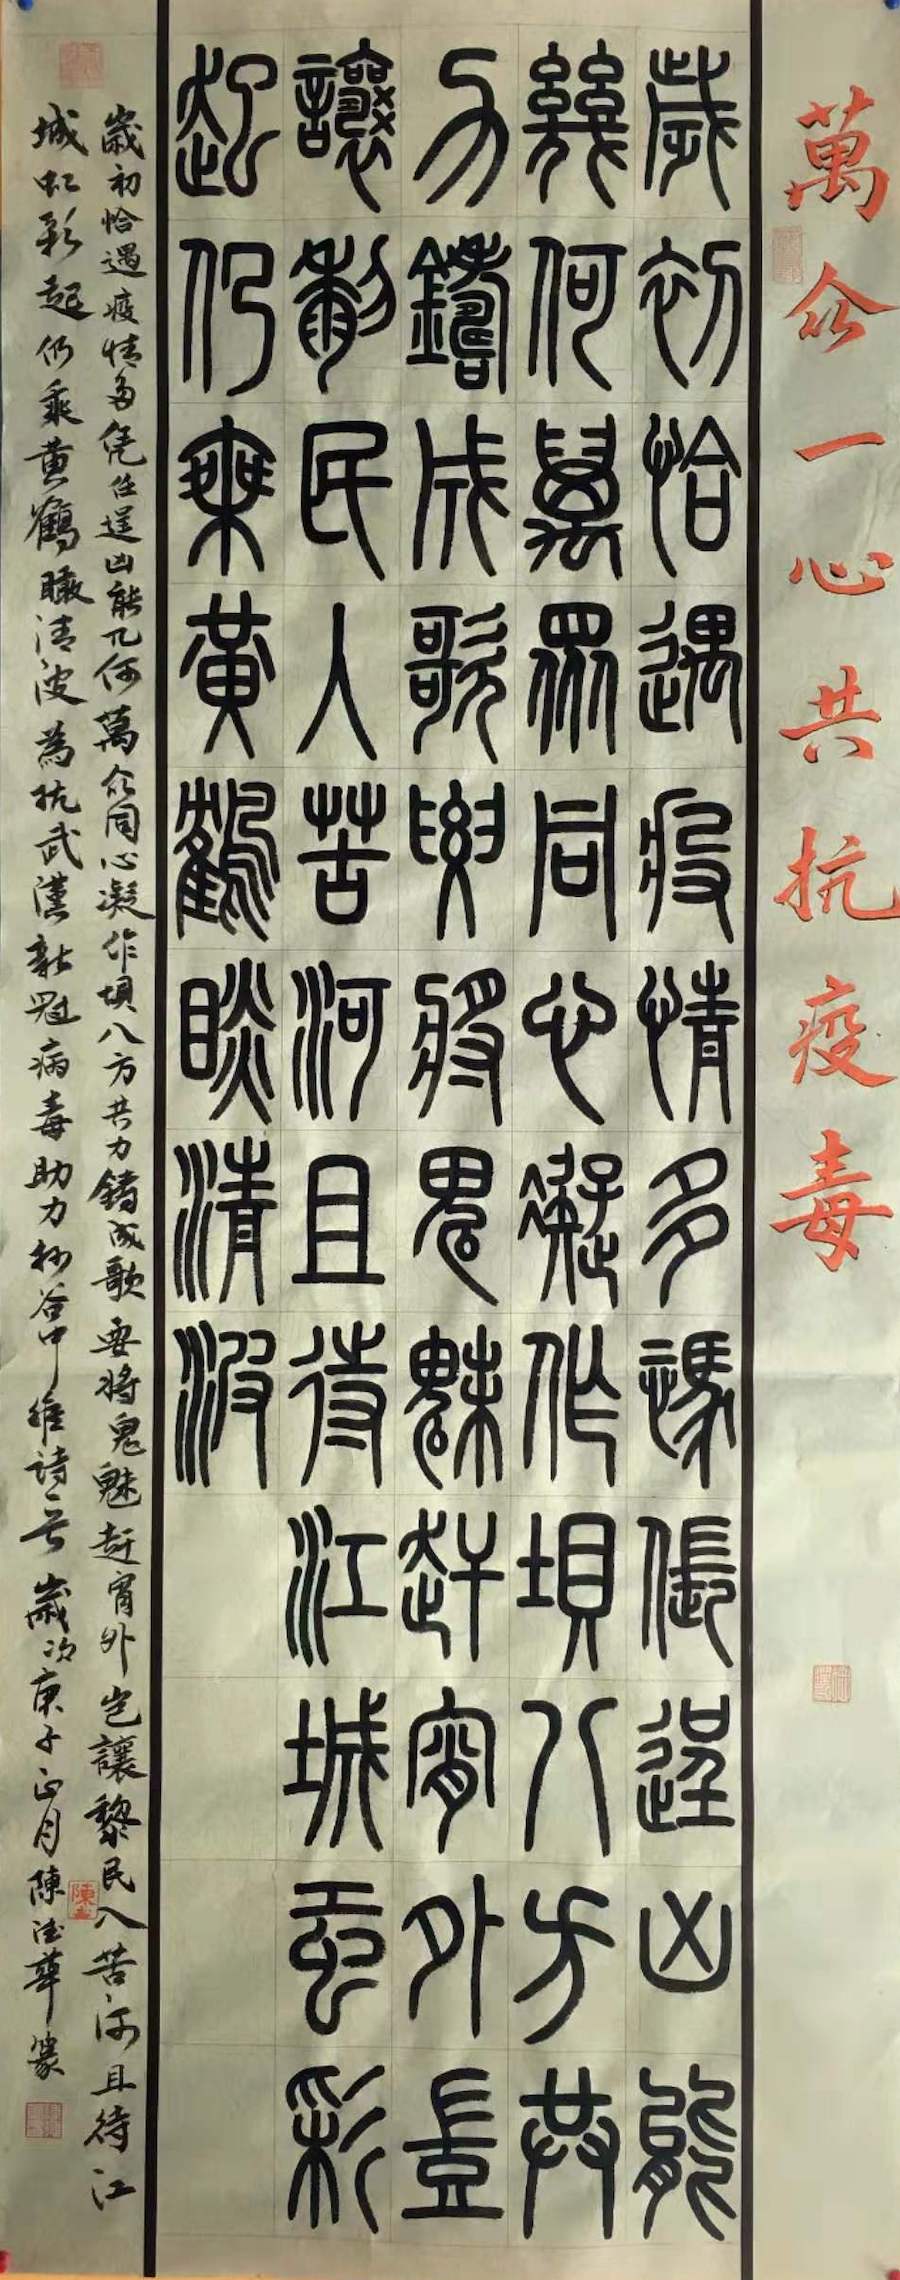 萬众一心共抗疫毒
歲初恰遇疫情多倀逞凶能
幾何萬眾同心凝作垻八方共
力鑄成歌要將鬼魅趕宵外豈
讓黎民入苦河且待江城虹彩
起仍乘黃鶴瞰清波
歲初恰遇疫情多凭任逞凶能几何萬众同心凝作垻八方共力鑄成歌要将鬼魅赶宵外岂讓黎民入苦河且待江
城虹彩起仍乘黄鶴瞰清波為抗武漢新冠病毒助力抄谷中維詩一首歲次庚子正月陳德華篆